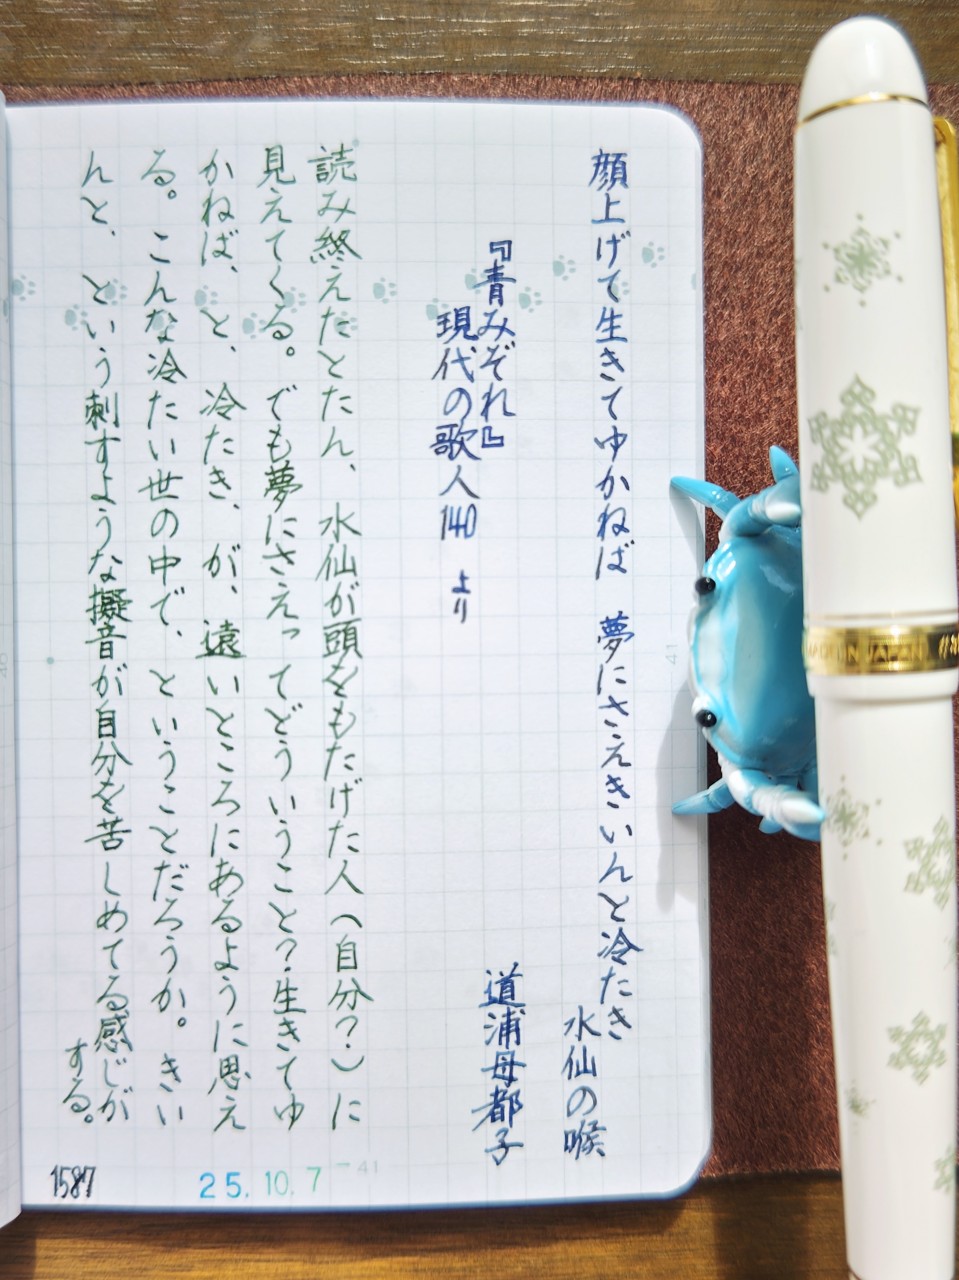 顔上げて生きてゆかねば 夢にさえきいんと冷たき
水仙の喉
道浦母都子
『青みぞれ』
現代の歌人140 より
読み終えたとたん、水仙が頭をもたげた人(自分?)に
見えてくる。でも夢にさえってどういうこと?生きてゆ
かねば、と、冷たき、が、遠いところにあるように思え
る。こんな冷たい世の中で、ということだろうか。きい
んと、という刺すような擬音が自分を苦しめてる感じが
する。
1587
25.10.7
41
41
MADE IN JAPAN